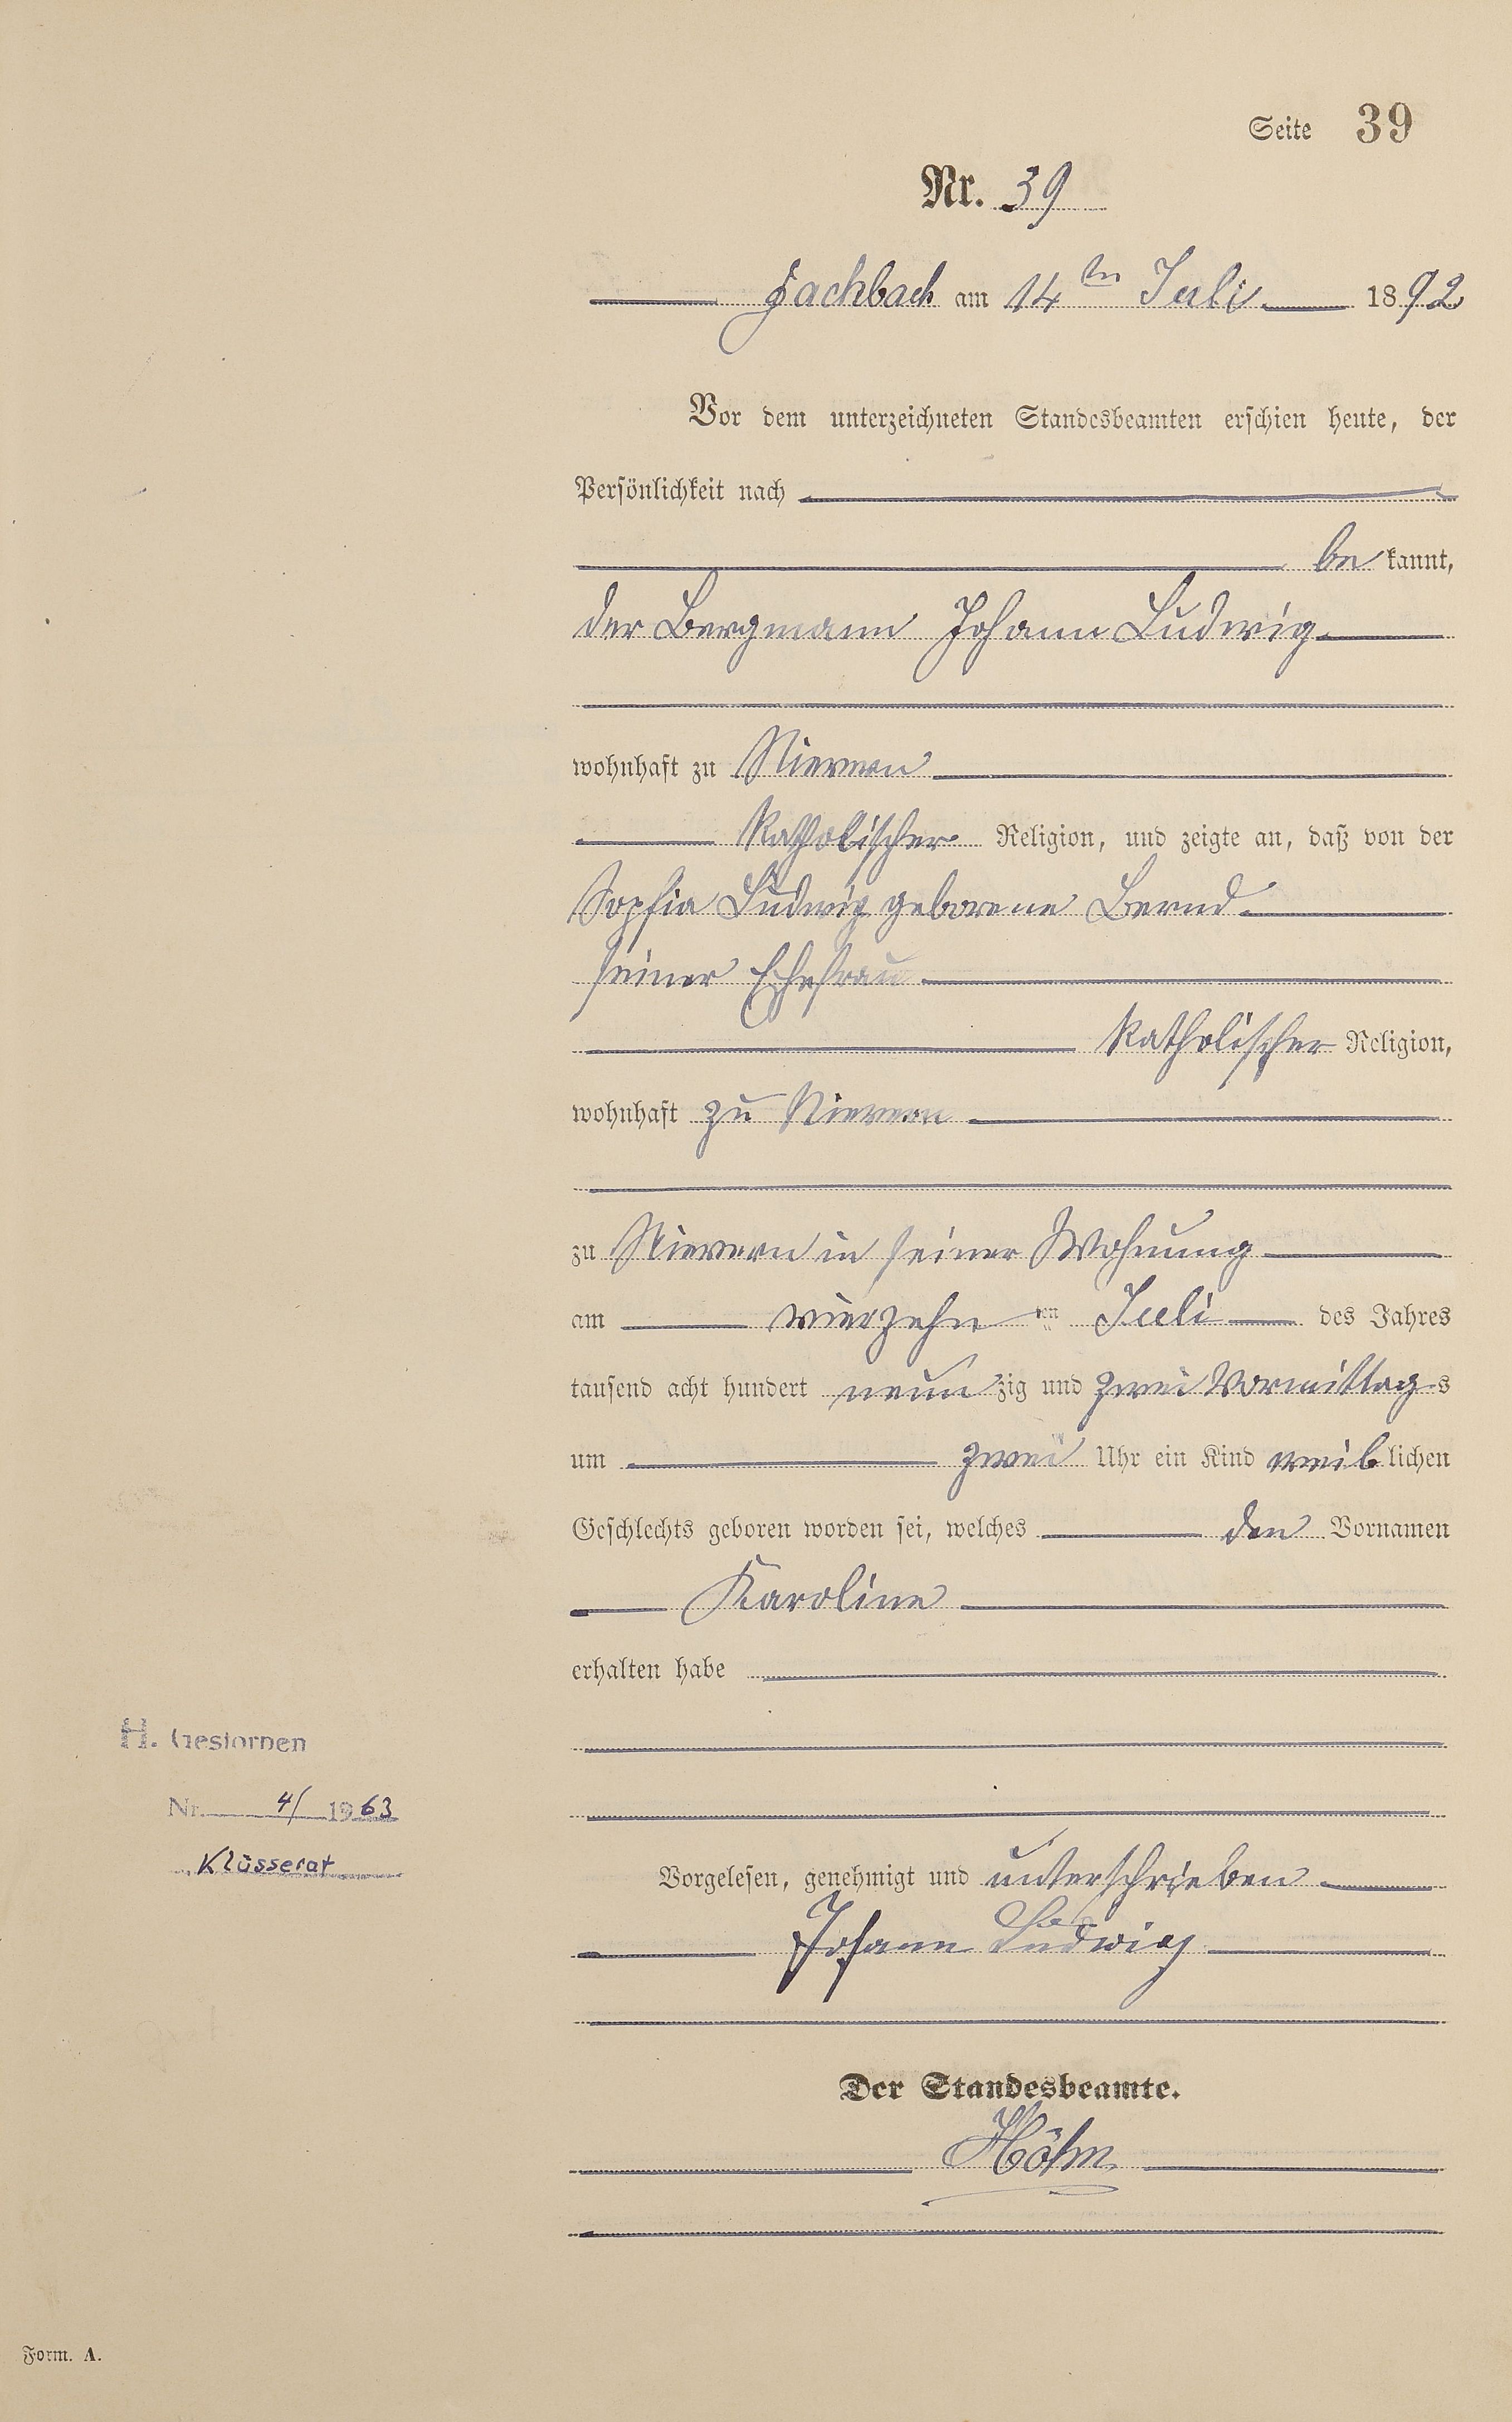 Seite 39
Nr. 39
Fachbach am 14ten Juli 1892
Vor dem unterzeichneten Standesbeamten erschien heute, der
Persönlichkeit nach
be kannt,
der Bergmann Johann Ludwig
wohnhaft zu Nievern
katholischer Religion, und zeigte an, daß von der
Sophia Ludwig geborene Bernd
seiner Ehefrau
katholischer Religion,
wohnhaft zu Nievern
zu Nievern in seiner Wohnung
am vierzehn ten Juli des Jahres
tausend acht hundert neun zig und zwei Vormittags
um zwei Uhr ein Kind weiblichen
Geschlechts geboren worden sei, welches den Vornamen
Karoline
erhalten habe
H. Gestorben
Nr. 4/1963
Klüsserat
Vorgelesen, genehmigt und unterschrieben
Johann Ludwig
Der Standesbeamte.
Form. A.